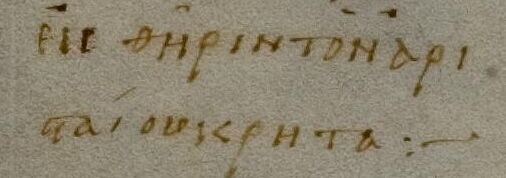 εις θηριν τον αρι
παιουκρητα :—